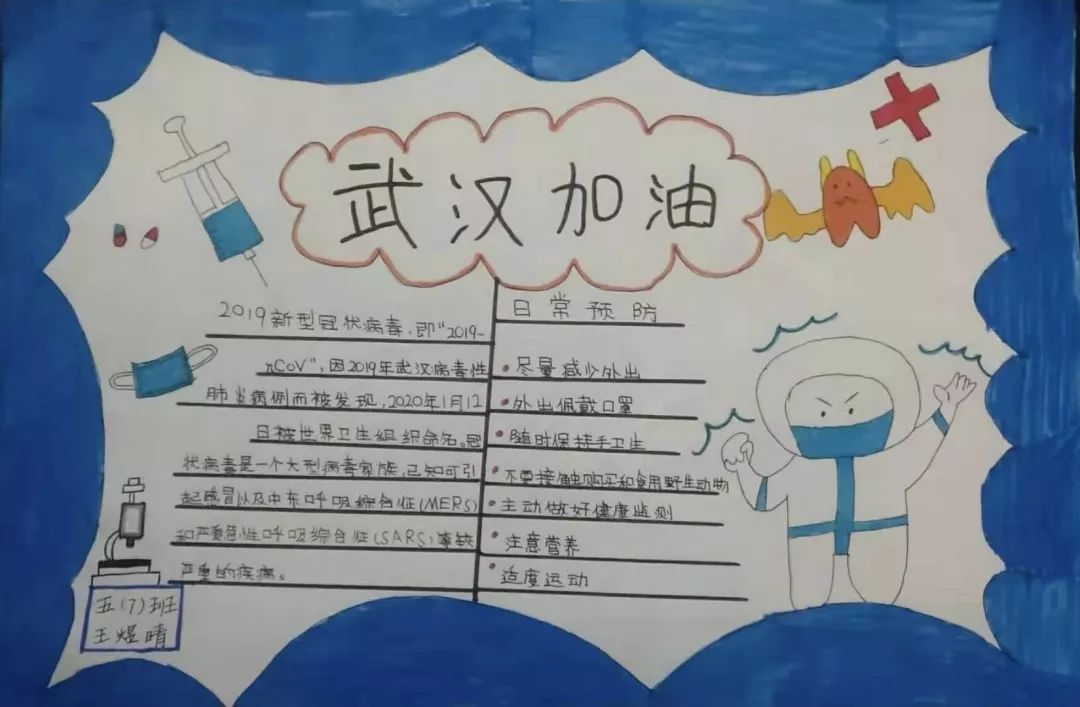 武汉加油
2019新型冠状病毒，即“2019-
nCoV”，因2019年武汉病毒性
肺炎病例而被发现，2020年1月12
日被世界卫生组织命名。冠
状病毒是一个大型病毒家族，已知可引
起感冒以及中东呼吸综合征(MERS)
和严重急性呼吸综合征(SARS)等较
严重的疾病。
日常预防
尽量减少外出
外出佩戴口罩
随时保持手卫生
不要接触购买和食用野生动物
主动做好健康监测
注意营养
适度运动
五(7)班
王煜晴